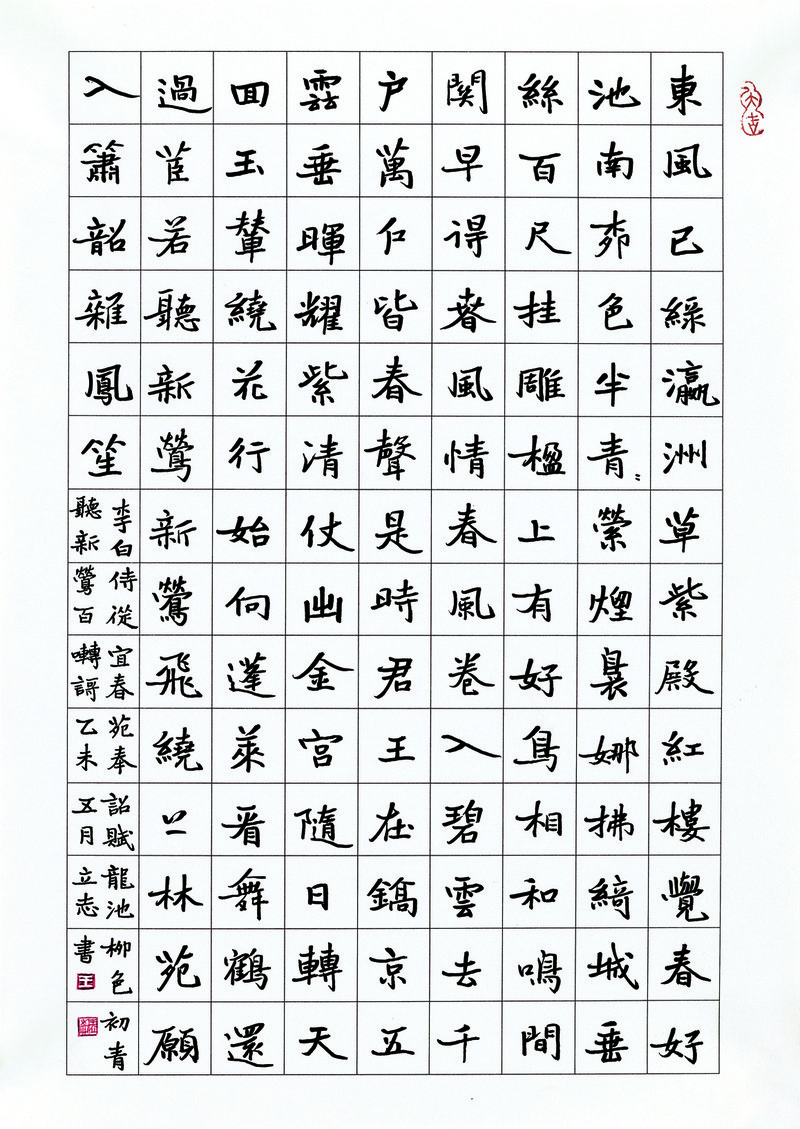 東風已綠瀛洲草紫殿紅樓覺春好
池南栁色半青〻縈煙裊娜拂綺城垂
絲百尺挂雕楹上有好鳥相和鳴間
関早得春風情春風卷入碧雲去千
户萬门皆春聲是時君王在鎬京五
雲垂暉耀紫清仗出金宮隨日轉天
回玉輦繞花行始向蓬萊看舞鶴還
過茝若聽新鶯新鶯飛繞上林苑願
入簫韶雜鳳笙
李白侍從宜春苑奉詔賦龍池柳色初青
聽新鶯百囀謌乙未五月立志書